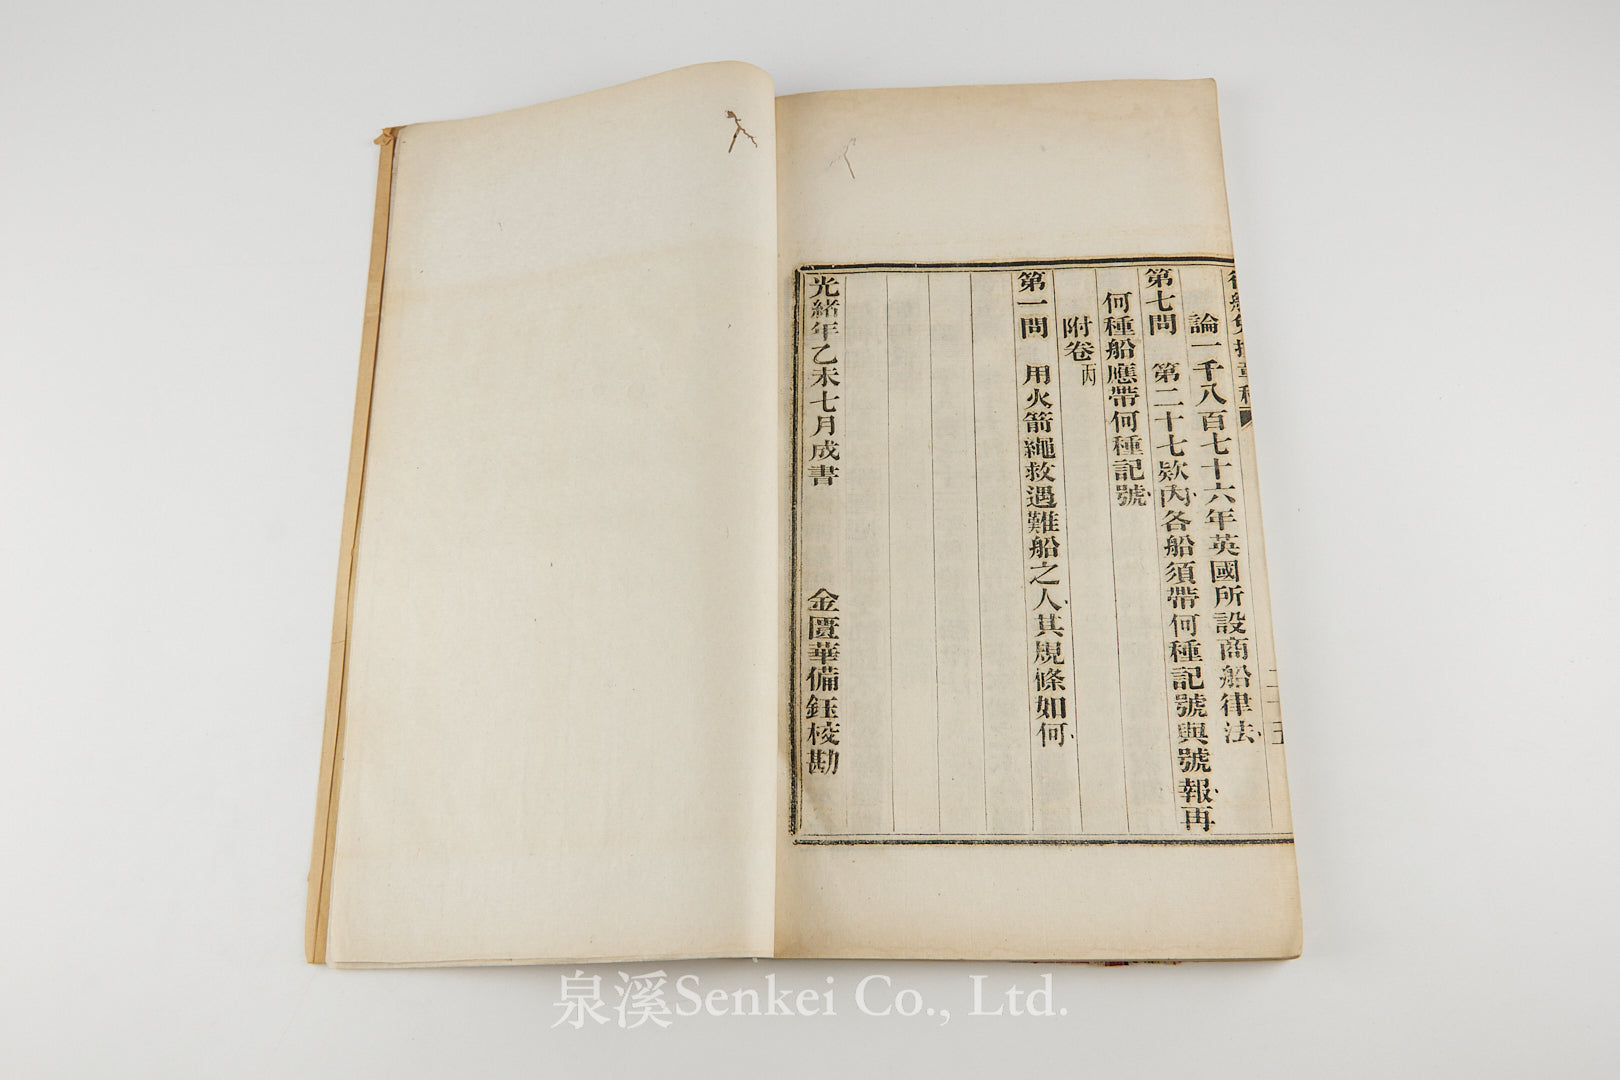 論一千八百七十六年英國所設商船律法
第七問　第二十七欵內各船須帶何種記號與號報再
何種船應帶何種記號
附卷丙
第一問　用火箭繩救遇難船之人其規條如何
光緒年乙未七月成書　金匱華備鈺校勘
泉溪Senkei Co., Ltd.